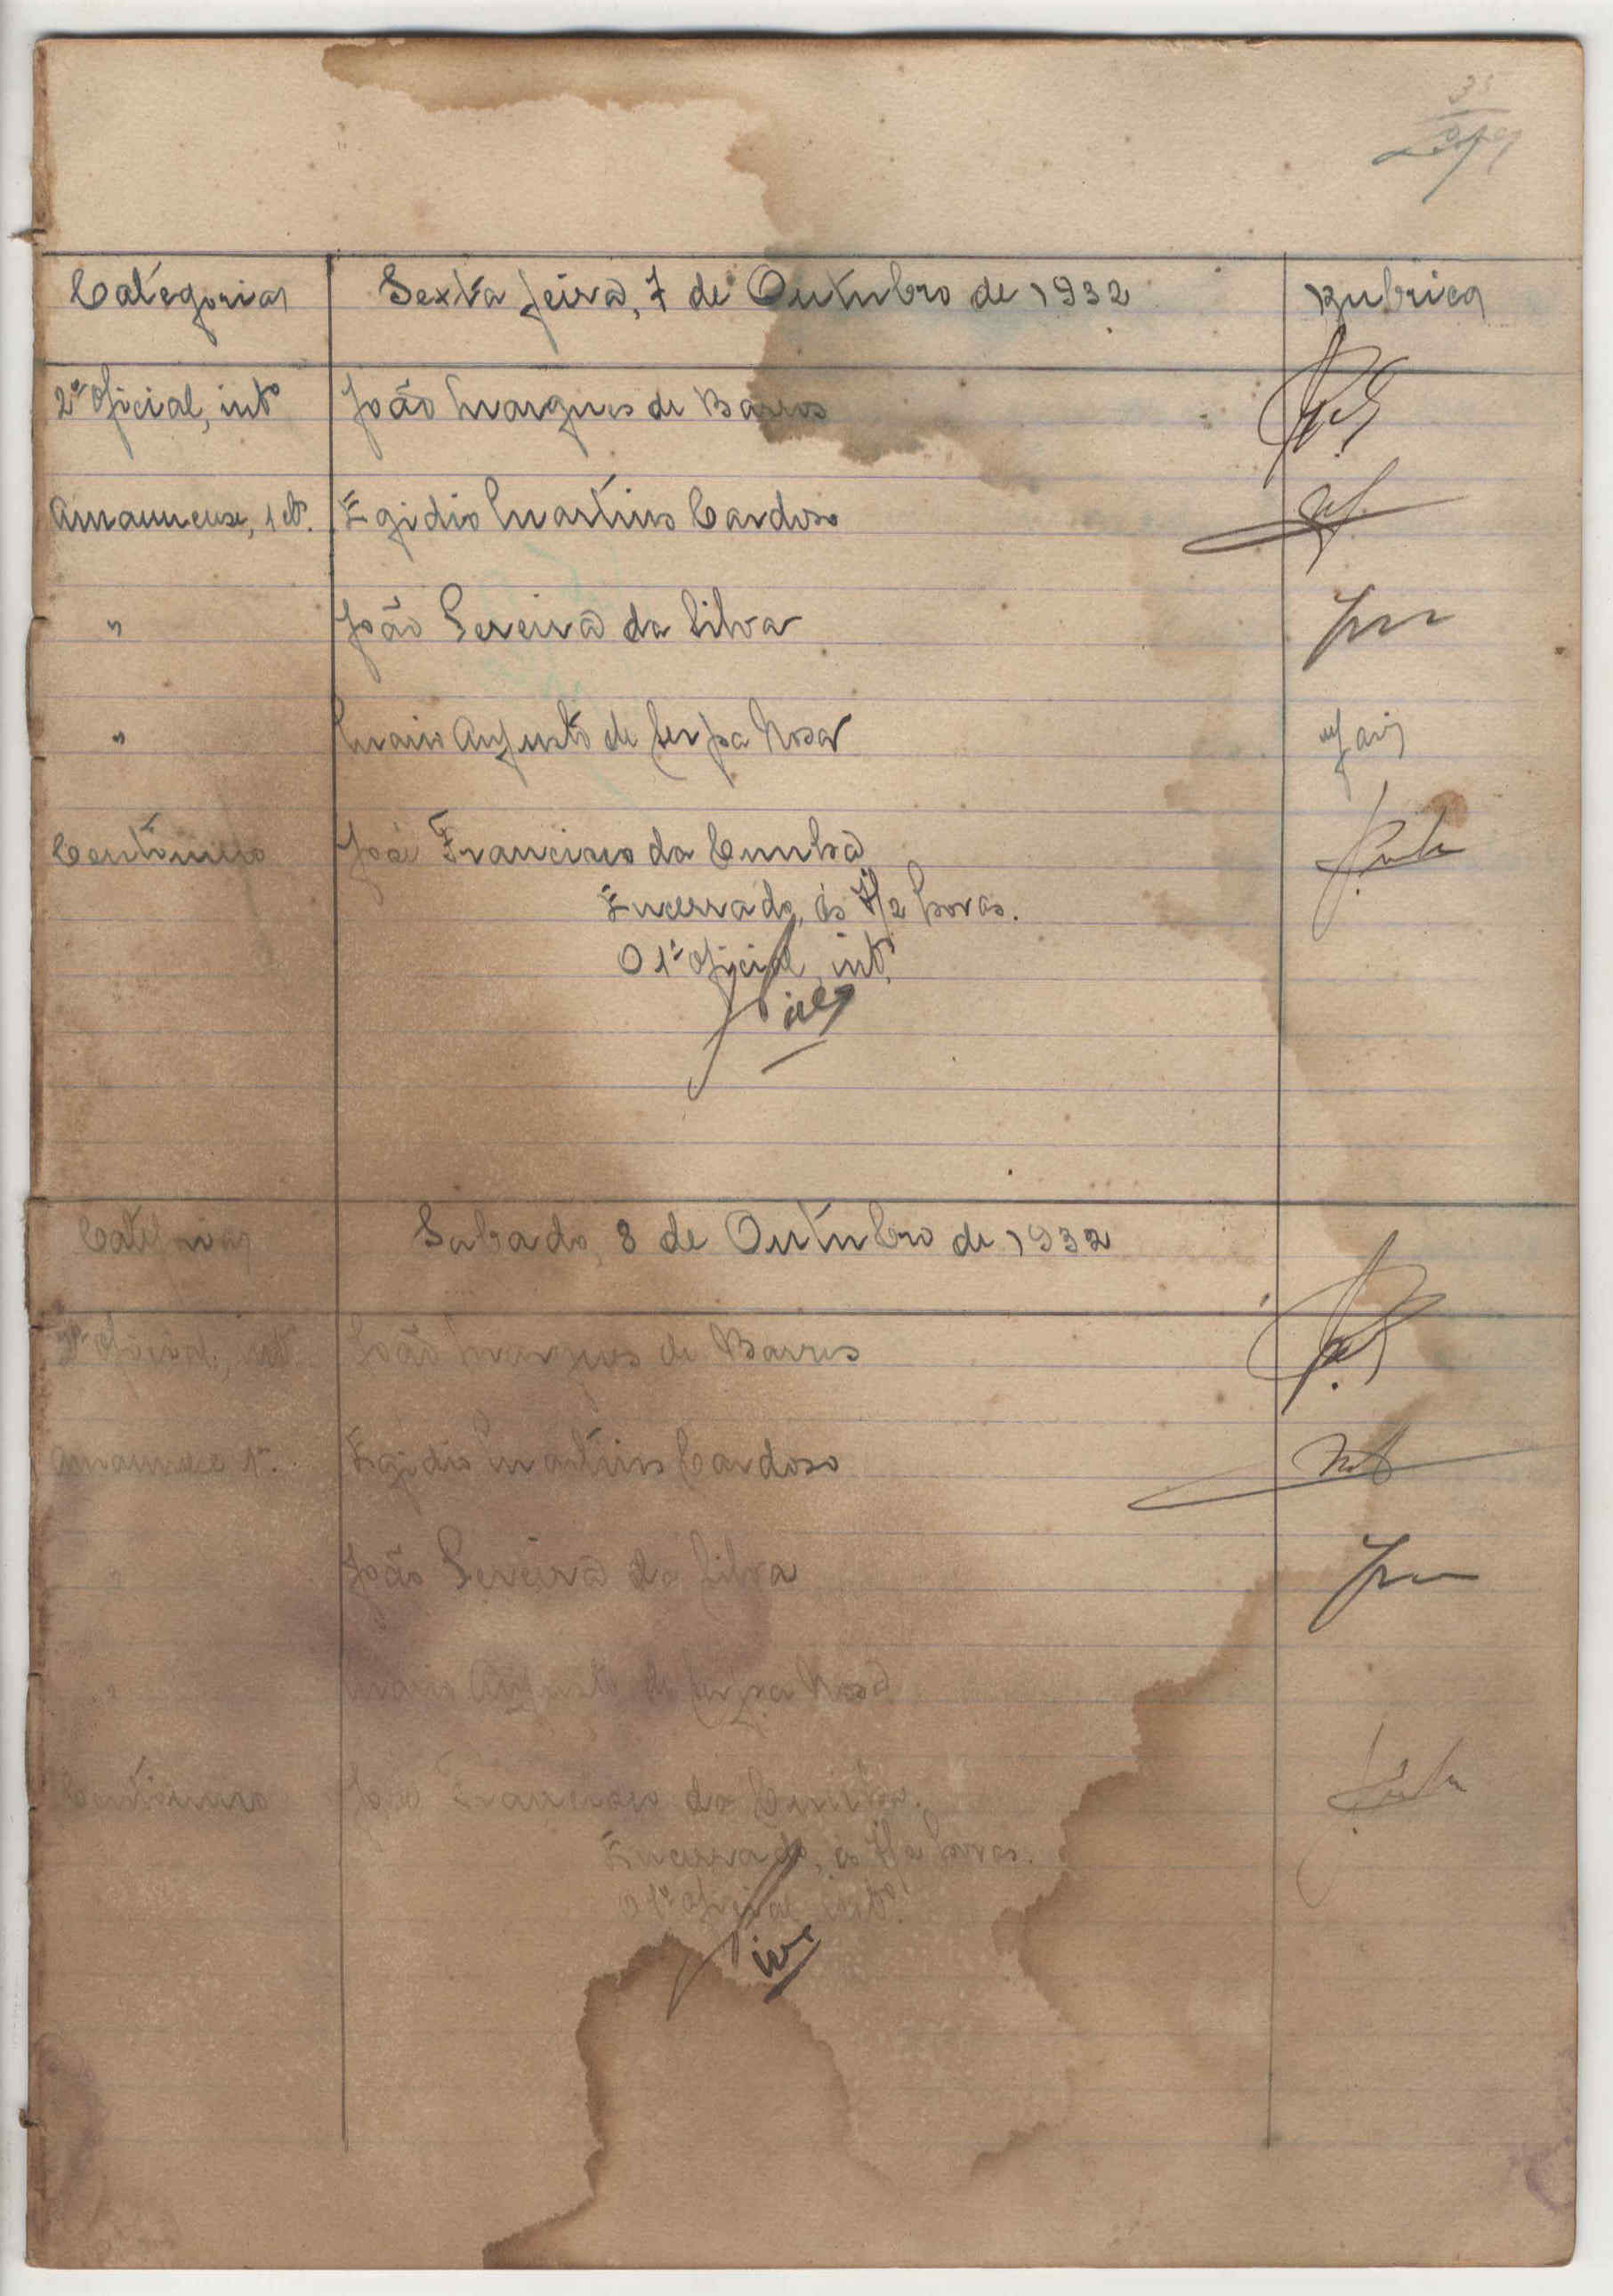 Categorias Sexta feira, 7 de Outubro de 1932 Rubricas
2º Oficial, intº João Marques de Barros
Amanuense, 1 et. Egidio Martins Cardoso
" João Pereira da Silva
" Mario Augusto de Serpa Rosa
Contínuo José Francisco da Cunha
Encerrado, ás 7/2 horas.
O 1º Oficial, intº.
Pires
Categorias Sabado, 8 de Outubro de 1932
2º Oficial, intº João Marques de Barros
Amanuense 1º. Egidio Martins Cardoso
" João Pereira da Silva
" Mario Augusto de Serpa Rosa
Contínuo José Francisco da Cunha.
Encerrado, ás 7/2 horas.
O 1º Oficial intº.
Pires